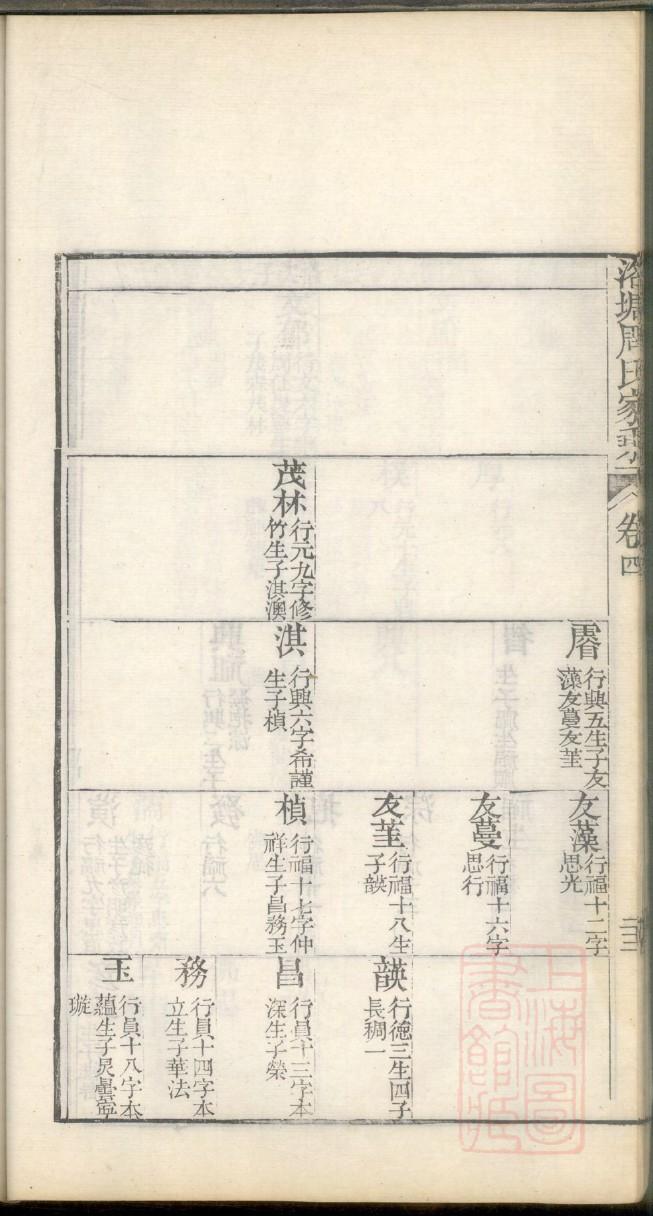 洛塘周氏家乘
卷四
三
茂林
行元九字修
竹生子淇澳
睿
行興五生子友
藻友蔓友荲
淇
行興六字希謹
生子楨
友藻
行福十二字
思光
友蔓
行福十六字
思行
友荲
行福十八生
子韺
楨
行福十七字仲
祥生子昌務玉
韺
行德三生四子
長稠一
昌
行員十三字本
深生子榮
務
行員十四字本
立生子華法
玉
行員十八字本
蘊生子炅
璇
上海圖書館藏